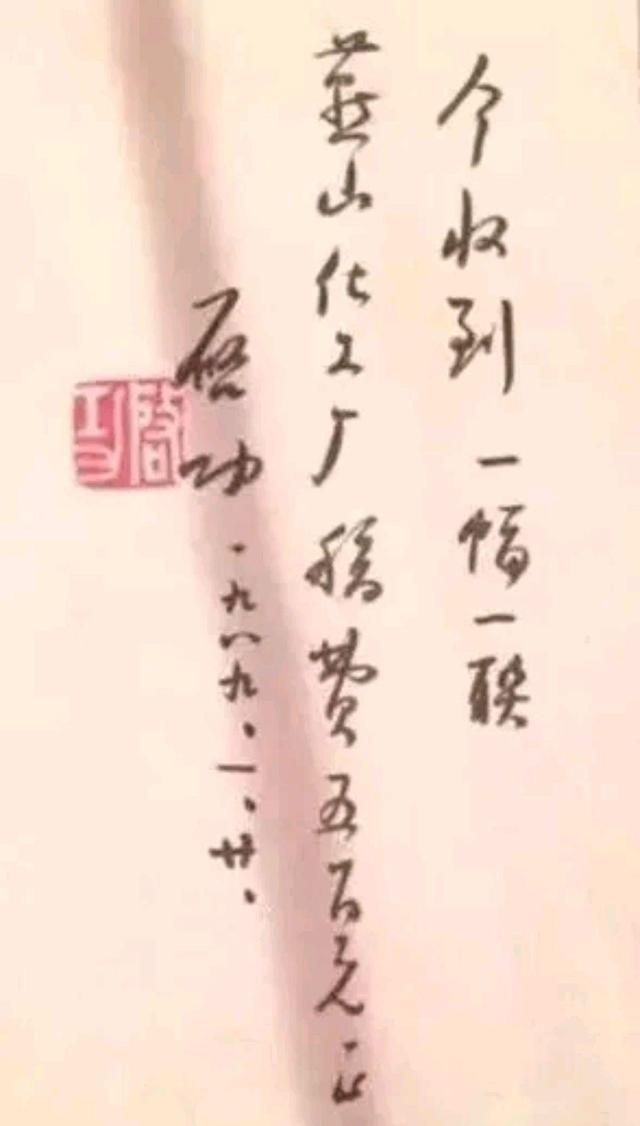 今收到一幅一联
燕山化工厂稿费五百元、正
启功
一九八九、一、廿、
启功